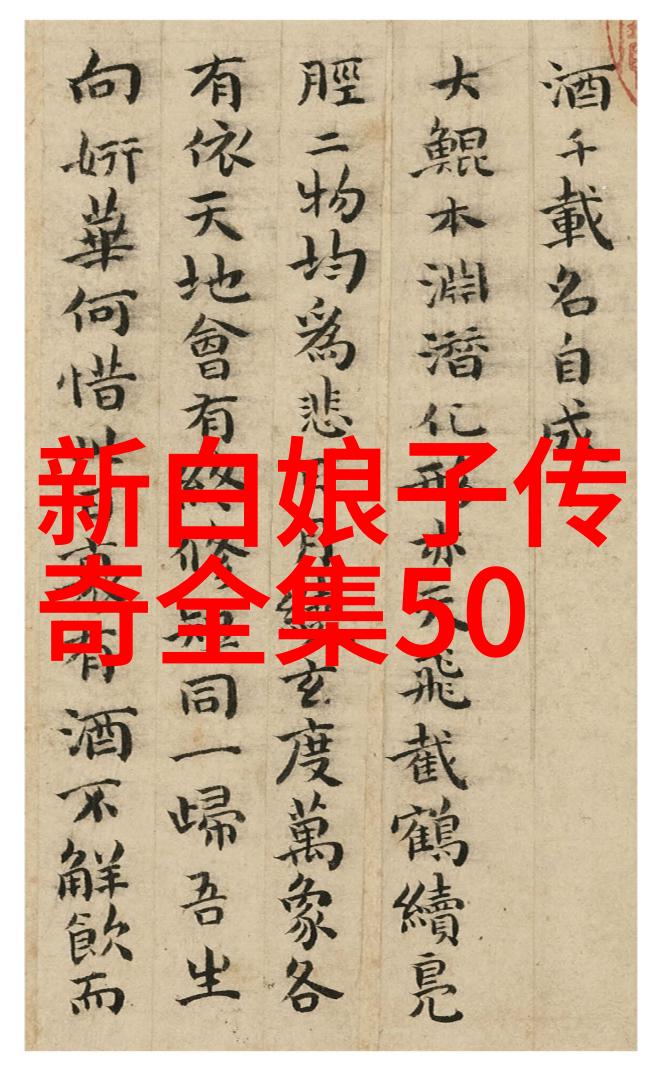 酒千載名自成
大鯤本淵潛化形亦天飛截鶴續鳧
脛二物均為悲日月續玄度萬象各
有依天地會有終修短同一歸吾生
向妍華何惜此有酒不解飲而
新白娘子传
奇全集50